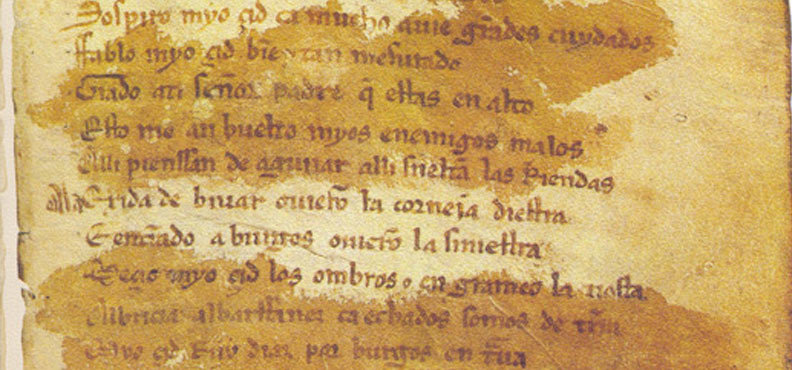 Sospiro myo çid ca mucho auie grãdes cuydados
Ffablo myo çid bien ⁊ tan mesurado
Grado ati señor padre q̃ estas en alto
Esto me an buelto myos enemigos malos
Alli pienssan de aguiiar alli sueltã las Riendas
Ala Exida de biuar ouierõ la corneja diestra
E entrãdo a burgos ouierõ la siniestra
Meçio myo çid los ombros ⁊ en grameo la tiesta
Albricia albarffanez ca echados somos de tr̃ra
Myo çid Ruy diaz por burgos en